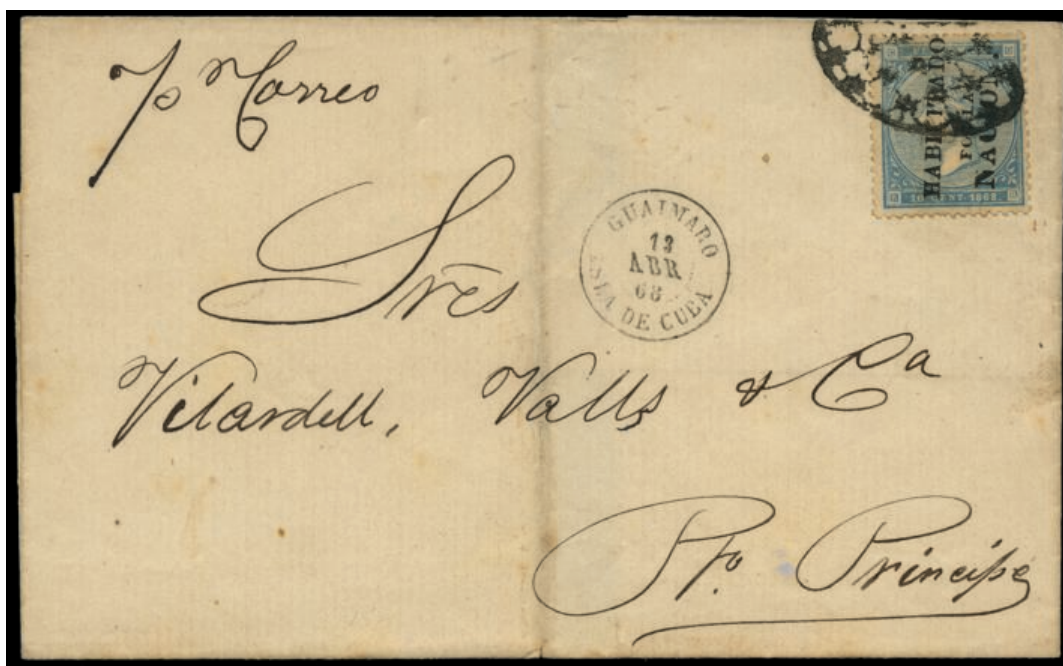 p Correo
HABILITADO
POR LA
NACION.
10 CENT. 1868
GUAIMARO
13
ABR
68
ISLA DE CUBA
Sres
Vilardell, Valls & Ca
Pto. Principe